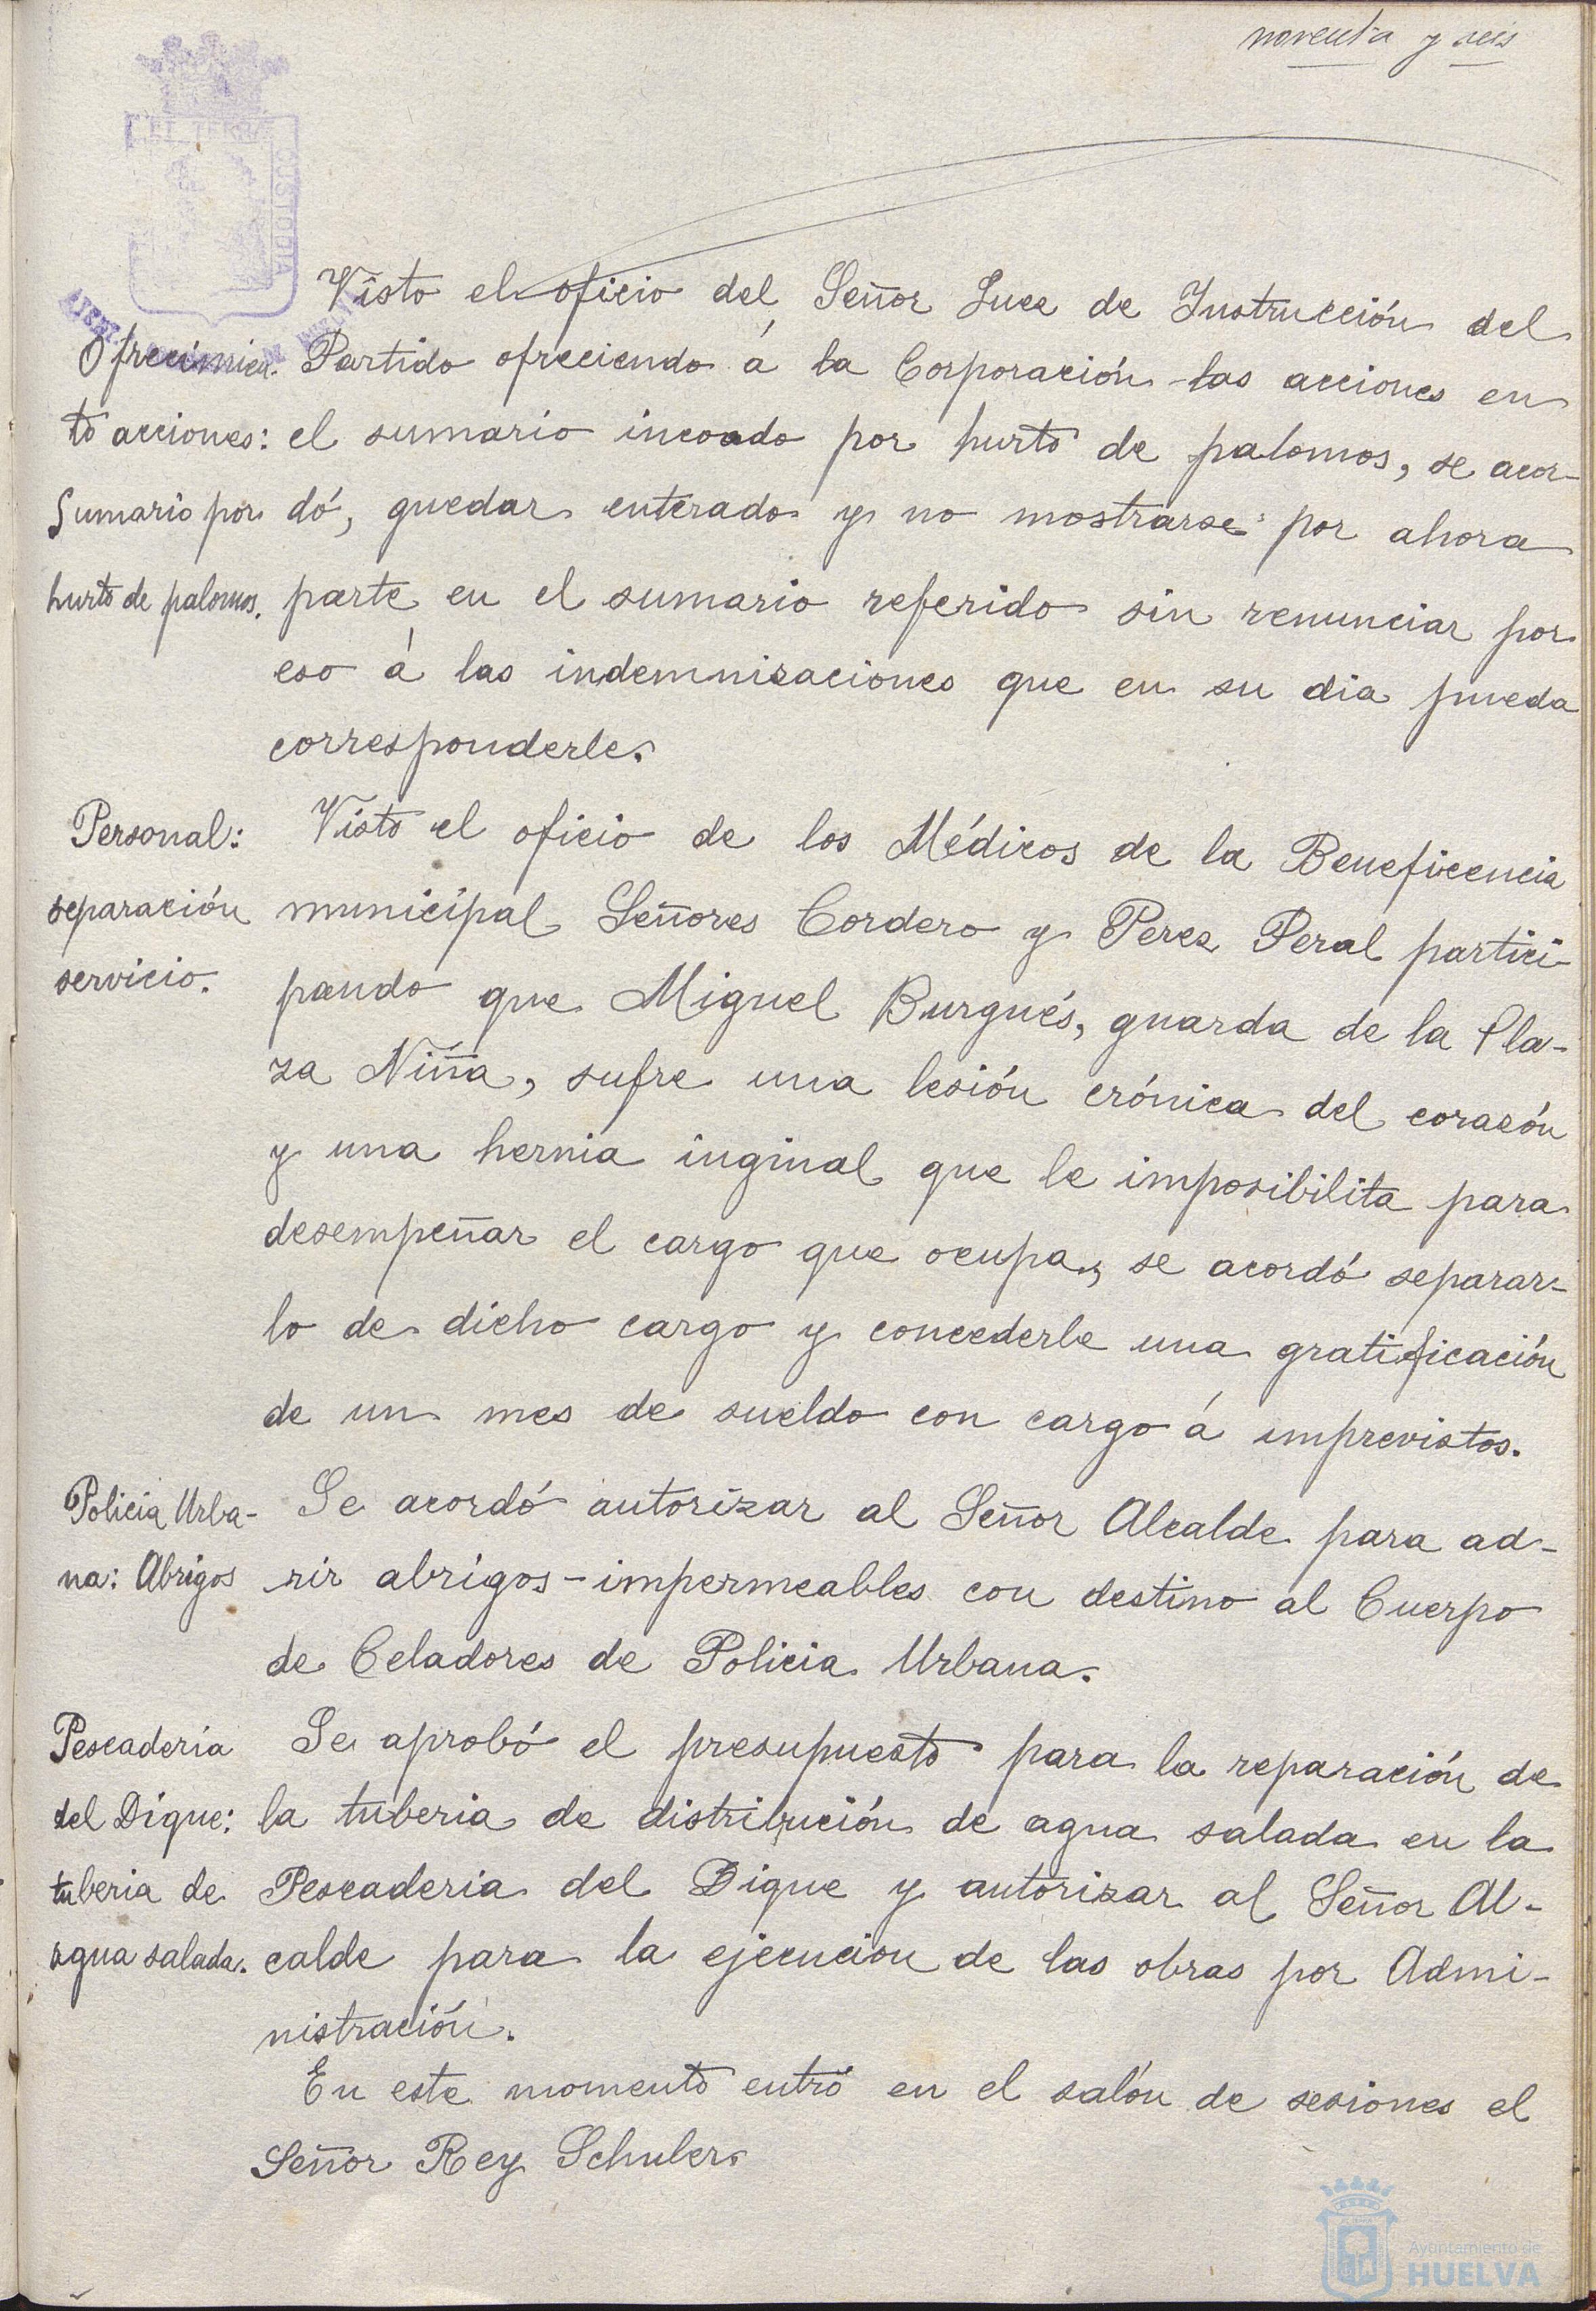 noventa y seis
Visto el oficio del Señor Juez de Instrucción del
Ofrecimien- Partido ofreciendo á la Corporación las acciones en
to acciones: el sumario incoado por hurto de palomos, se acor-
Sumario por dó, quedar enterado y no mostrarse por ahora
hurto de palomos. parte en el sumario referido sin renunciar por
eso á las indemnizaciones que en su dia pueda
corresponderle.
Personal: Visto el oficio de los Médicos de la Beneficencia
separación municipal Señores Cordero y Perez Peral partici-
servicio. pando que Miguel Burgués, guarda de la Pla-
za Niña, sufre una lesión crónica del corazón
y una hernia inginal que le imposibilita para
desempeñar el cargo que ocupa, se acordó separar-
lo de dicho cargo y concederle una gratificación
de un mes de sueldo con cargo á imprevistos.
Policia Urba- Se acordó autorizar al Señor Alcalde para ad-
na: Abrigos rir abrigos-impermeables con destino al Cuerpo
de Celadores de Policia Urbana.
Pescadería Se aprobó el presupuesto para la reparación de
del Dique: la tuberia de distribución de agua salada en la
tuberia de Pescaderia del Dique y autorizar al Señor Al-
agua salada. calde para la ejecucion de las obras por Admi-
nistración.
En este momento entró en el salón de sesiones el
Señor Rey Schuler.
CUSTODIA
Ayuntamiento de
HUELVA